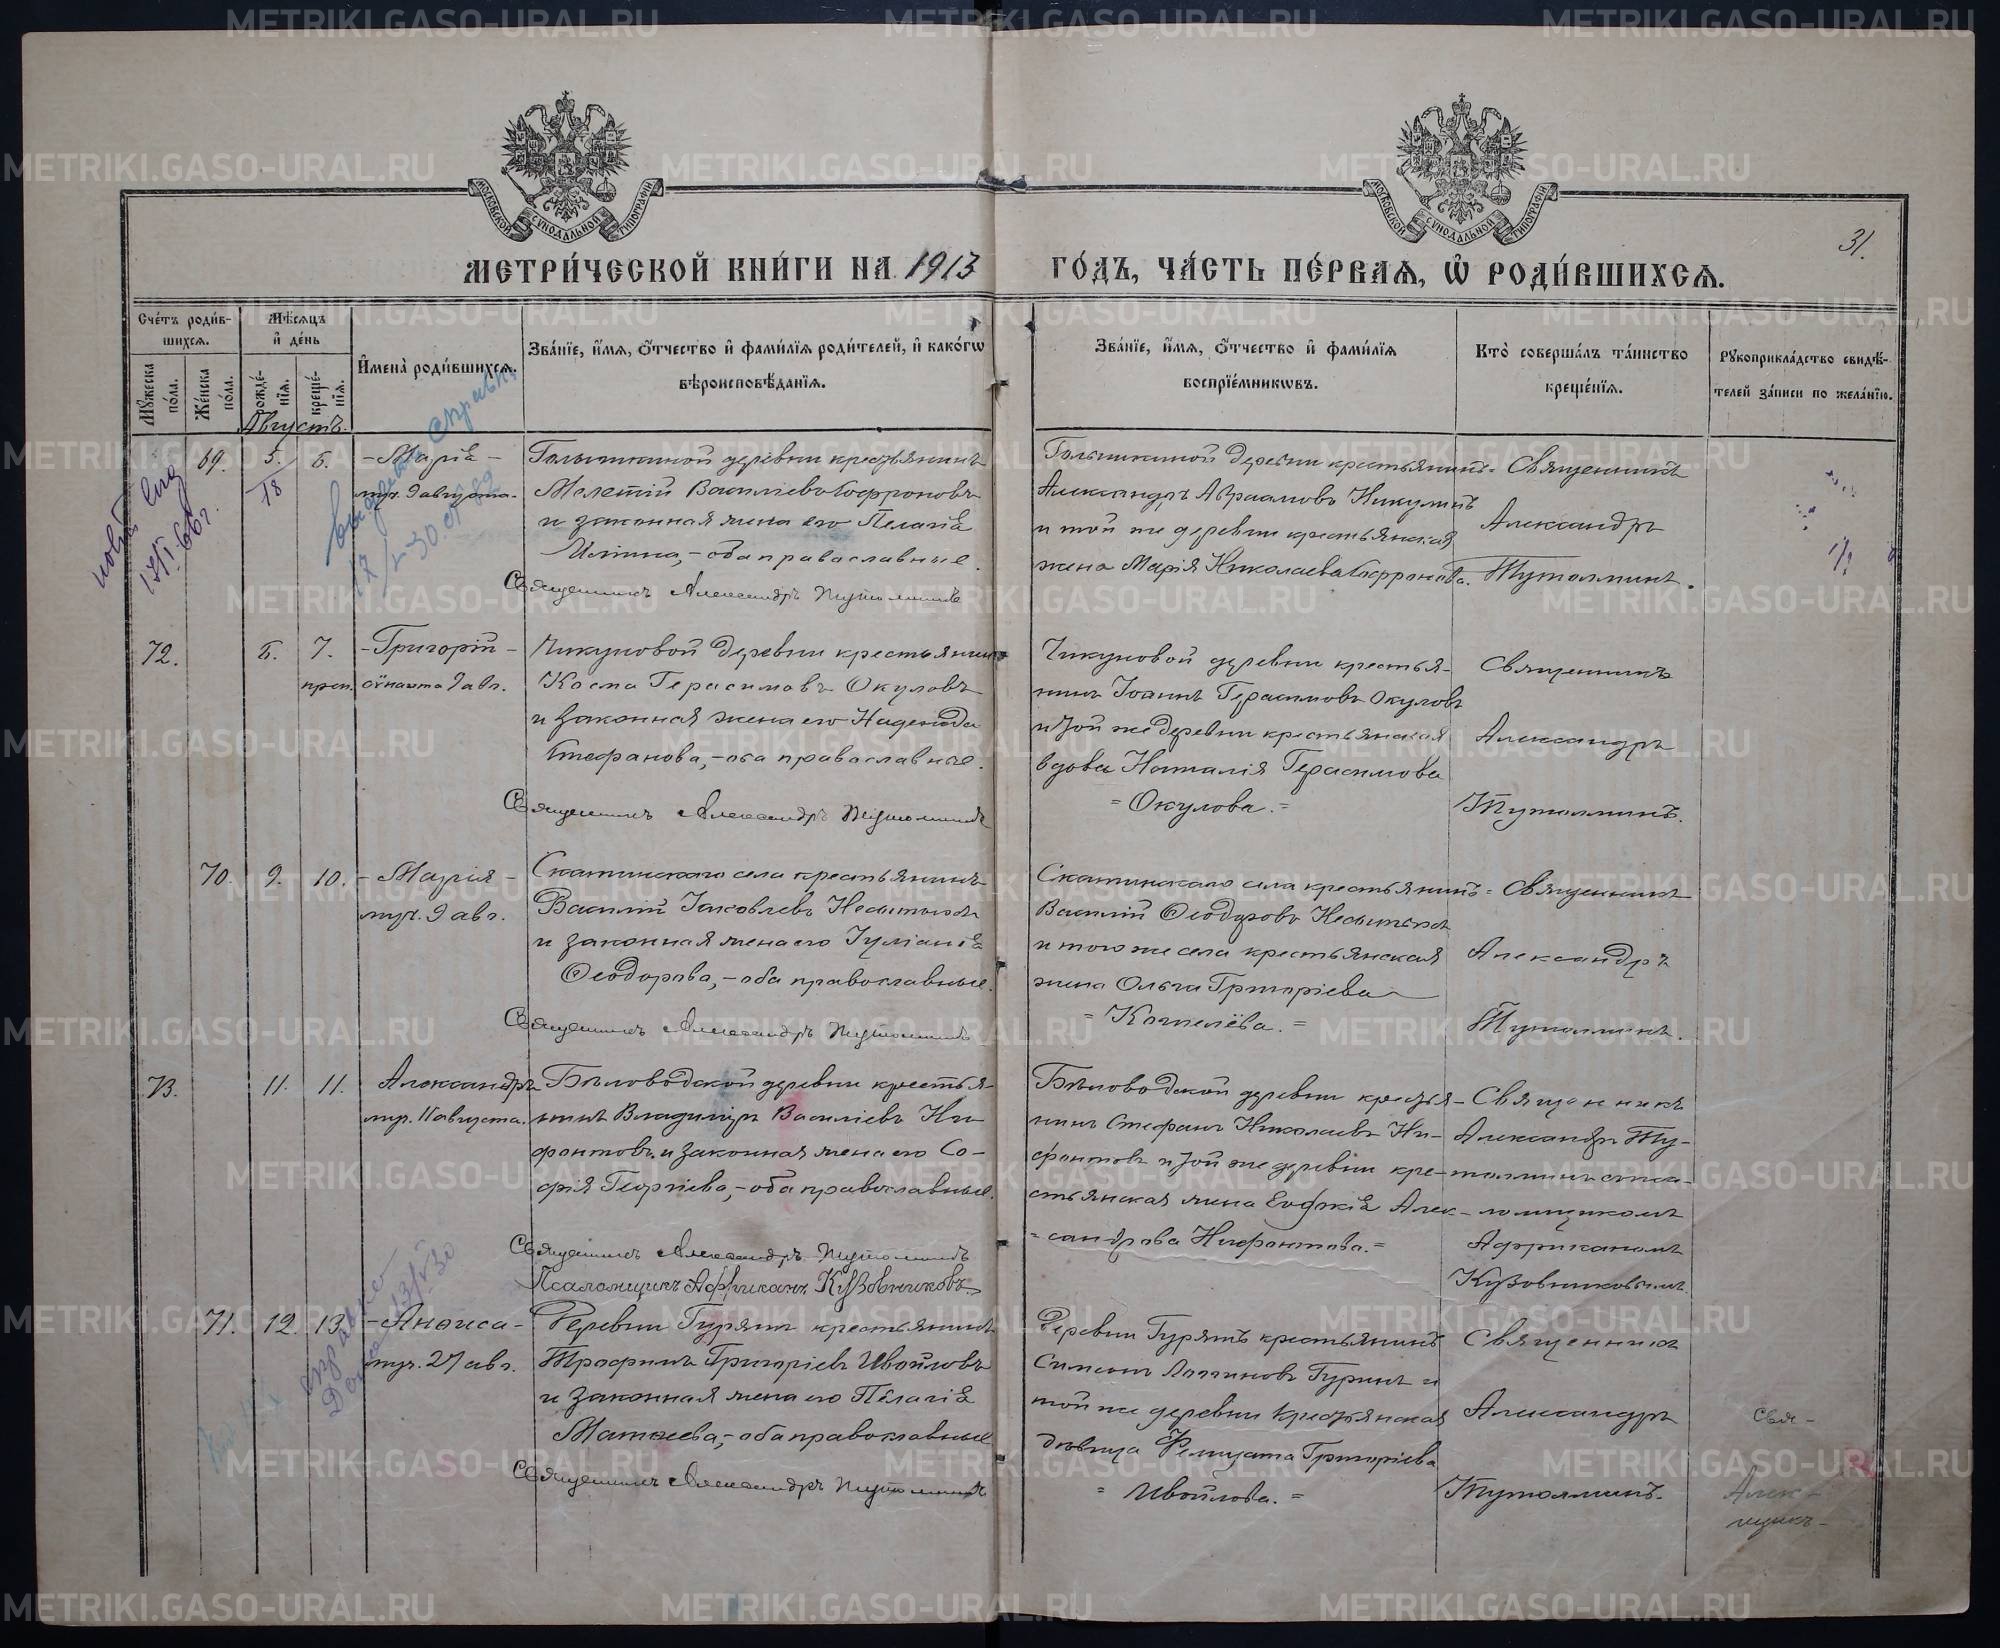 МЕТРИ́ЧЕСКОЙ КНИ́ГИ НА 1913
ГО́ДЪ, ЧА́СТЬ ПЕ́РВАѦ, Ѽ РОДИ́ВШИХСѦ.
31.
Сче́тъ роди́в-
шихсѧ.
Мꙋ́жеска по́ла.
Же́нска по́ла.
Мѣ́сѧцъ
и҆ де́нь
рожде́-
нїѧ.
креще́-
нїѧ.
И҆мена̀ роди́вшихсѧ.
Зва́нїе, и҆́мѧ, ѻ҆́тчество и҆ фами́лїѧ роди́телей, и҆ како́гѡ
вѣроисповѣ́данїѧ.
Зва́нїе, и҆́мѧ, ѻ҆́тчество и҆ фами́лїѧ
воспрїе́мникѡвъ.
Кто̀ соверша́лъ та́инство
креще́нїѧ.
Рꙋкоприкла́дство свидѣ́-
телей за́писи по жела́нїю.
Августъ.
69. 5/18 6. - Марія -
муч. 9 августа.
Мелетій Василіевъ Софроновъ
и законная жена его Пелагія
Ильина, - оба православные.
Священникъ Александръ Тутолминъ
деревни крестьянинъ
Александръ Авраамовъ Никулинъ
и той же деревни крестьянская
жена Марія Николаева Софронова.
Священникъ
Александръ
Тутолминъ.
72. 6. 7. - Григорій -
преп. 9 авг.
Чикуновой деревни крестьянинъ
Косма Герасимовъ Окуловъ
и законная жена его Надежда
Стефанова, - оба православные.
Священникъ Александръ Тутолминъ
Чикуновой деревни крестья-
нинъ Іоаннъ Герасимовъ Окуловъ
и той же деревни крестьянская
вдова Наталія Герасимова
= Окулова. =
Священникъ
Александръ
Тутолминъ.
70. 9. 10. - Марія -
муч. 9 авг.
Скатинскаго села крестьянинъ
Василій Іаковлевъ
и законная жена его Іуліанія
Ѳеодорова, - оба православные.
Священникъ Александръ Тутолминъ
Скатинскаго села крестьянинъ
Василій Ѳеодоровъ
и того же села крестьянская
жена Ольга Григоріева
= Копелёва. =
= Священникъ
Александръ
Тутолминъ.
73. 11. 11. Александръ
муч. 11 августа.
Бѣловодской деревни крестья-
нинъ Владиміръ Василіевъ Ни-
фонтовъ и законная жена его Со-
фія Георгіева, - оба православные.
Священникъ Александръ Тутолминъ
Псаломщикъ Африканъ Кузовниковъ
Бѣловодской деревни крестья-
нинъ Стефанъ Николаевъ Ни-
фонтовъ и той же деревни кре-
стьянская жена Евфимія Алек-
= сандрова Нифонтова. =
Священникъ
Александръ Ту-
толминъ съ пса-
ломщикомъ
Африканомъ
Кузовниковымъ.
71. 12. 13. - Анѳиса -
муч. 27 авг.
Деревни Гурятъ крестьянинъ
Трофимъ Григоріевъ Ивойловъ
и законная жена его Пелагія
Матѳеева, - оба православные
Священникъ Александръ Тутолминъ
Деревни Гурятъ крестьянинъ
Симеонъ Логиновъ Гуринъ и
той же деревни крестьянская
дѣвица Фелицата Григоріева
= Ивойлова. =
Священникъ
Александръ
Тутолминъ.
METRIKI.GASO-URAL.RU